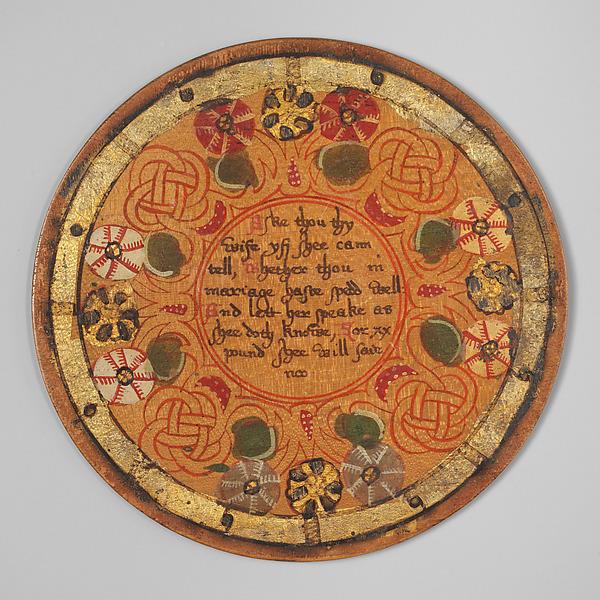 Aske thou thy
wife yfi shee cann
tell, Whethere thou in
mariage haste spedd well
And lett her speake as
shee doth knowe, For xx
pound shee will saie
noo